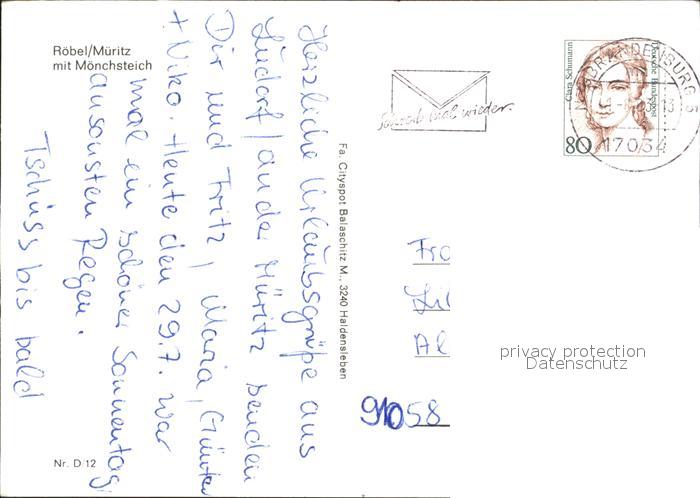 Röbel/Müritz
mit Mönchsteich
Herzliche Urlaubsgrüße aus
Ludorf/an der Müritz senden
Dir und Fritz, Maria, Günter
+ Niko. Heute den 29.7. war
mal ein schöner Sonnentag
ansonsten Regen.
Tschüss bis bald
Nr. D 12
Fa. Cityspot Balaschitz M., 3240 Haldensleben
Schreib mal wieder.
Clara Schumann
Deutsche Bundespost
80
NEUBRANDENBURG
17034
Fra
Lil
Al
91058
privacy protection
Datenschutz